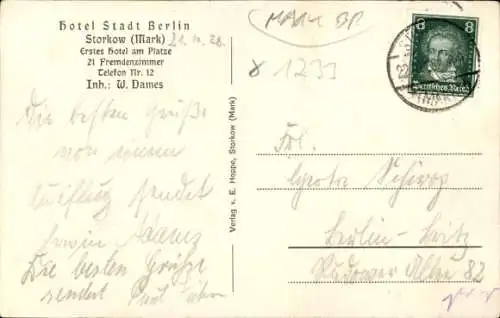 Hotel Stadt Berlin
Storkow (Mark)
Erstes Hotel am Platze
21 Fremdenzimmer
Telefon Nr. 12
Inh.: W. Dames
MARK BR
1233
8 8
Deutsches Reich
Die besten Grüße
von
Ausflug sendet
Erwin Adam
Die besten Grüße
sendet Paul
Verlag v. E. Hoppe, Storkow (Mark)
Frl.
Grete
Berlin-Britz
Rudower Allee 82